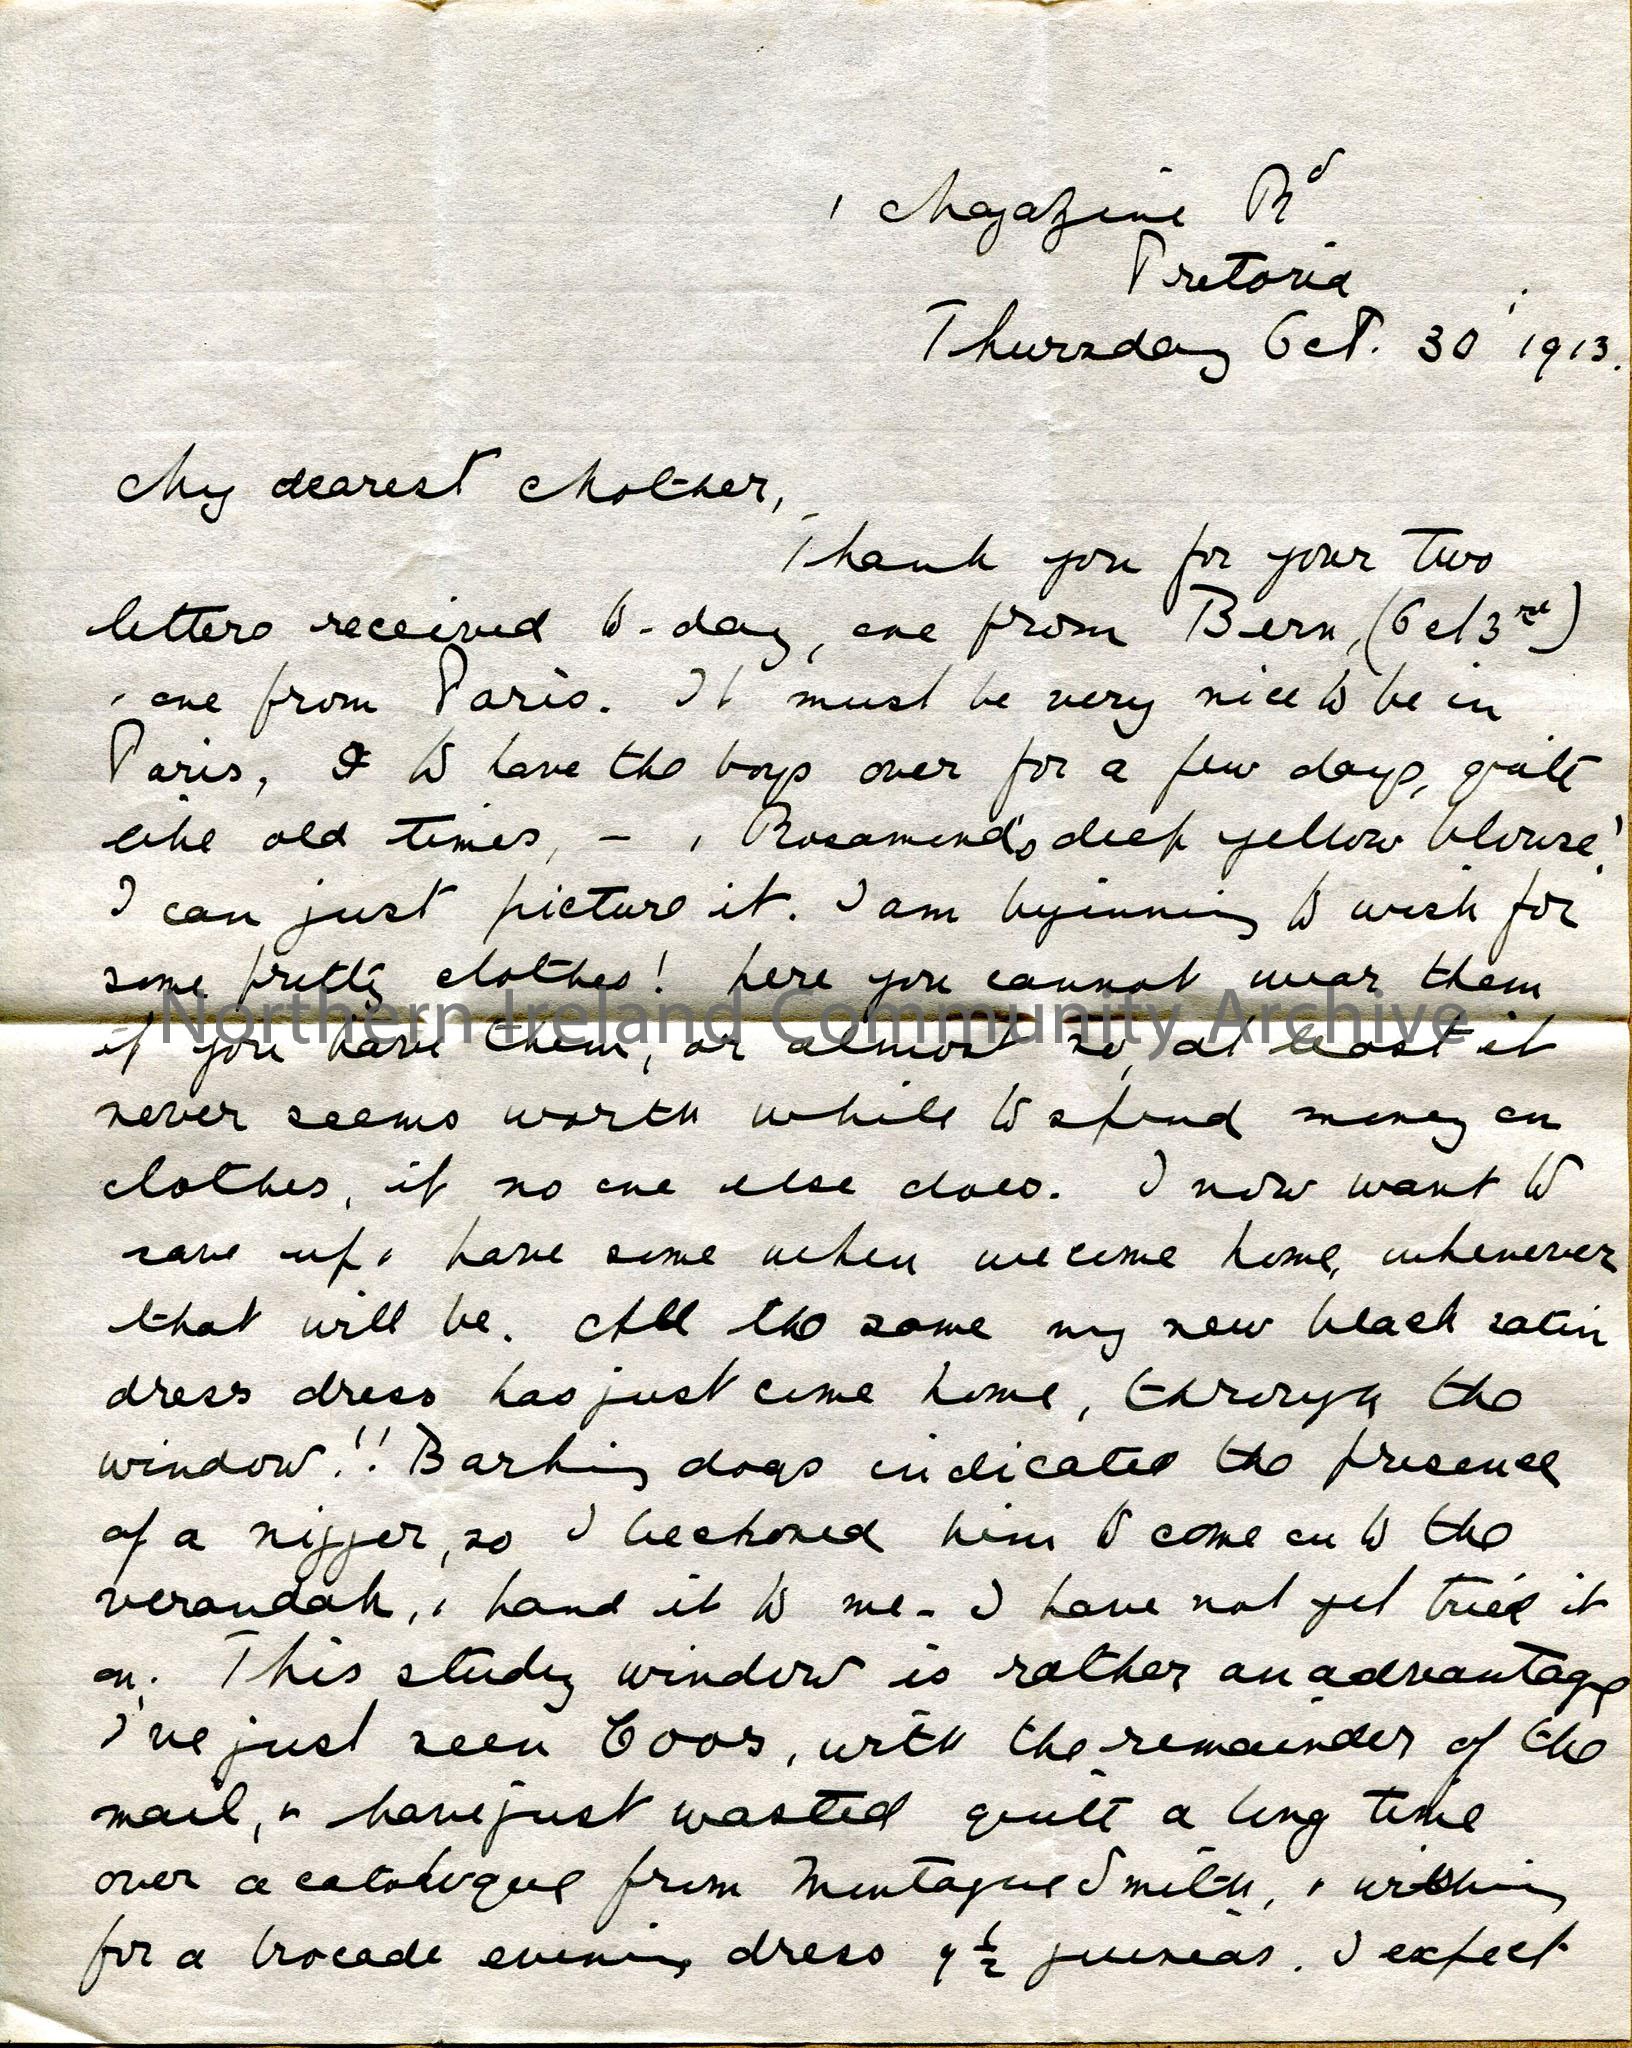 1 Magazine Rd
Pretoria
Thursday Oct. 30 1913.
My dearest Mother,
Thank you for your two
letters received to-day, one from Bern, (Oct 3rd)
& one from Paris. It must be very nice to be in
Paris, & to have the boys over for a few days, quite
like old times, — & Rosamund's deep yellow blouse!
I can just picture it. I am beginning to wish for
some pretty clothes! here you cannot wear them
if you have them, or almost so, at least it
never seems worth while to spend money on
clothes, if no one else does. I now want to
save up & have some when we come home, whenever
that will be. All the same my new black satin
dress dress has just come home, through the
window!! Barking dogs indicated the presence
of a nigger, so I beckoned him to come on to the
verandah, & hand it to me - I have not yet tried it
on. This study window is rather an advantage
I've just seen Coos, with the remainder of the
mail, & have just wasted quite a long time
over a catalogue from Montague Smith, & wishing
for a brocade evening dress 9½ guineas. I expect
Northern Ireland Community Archive